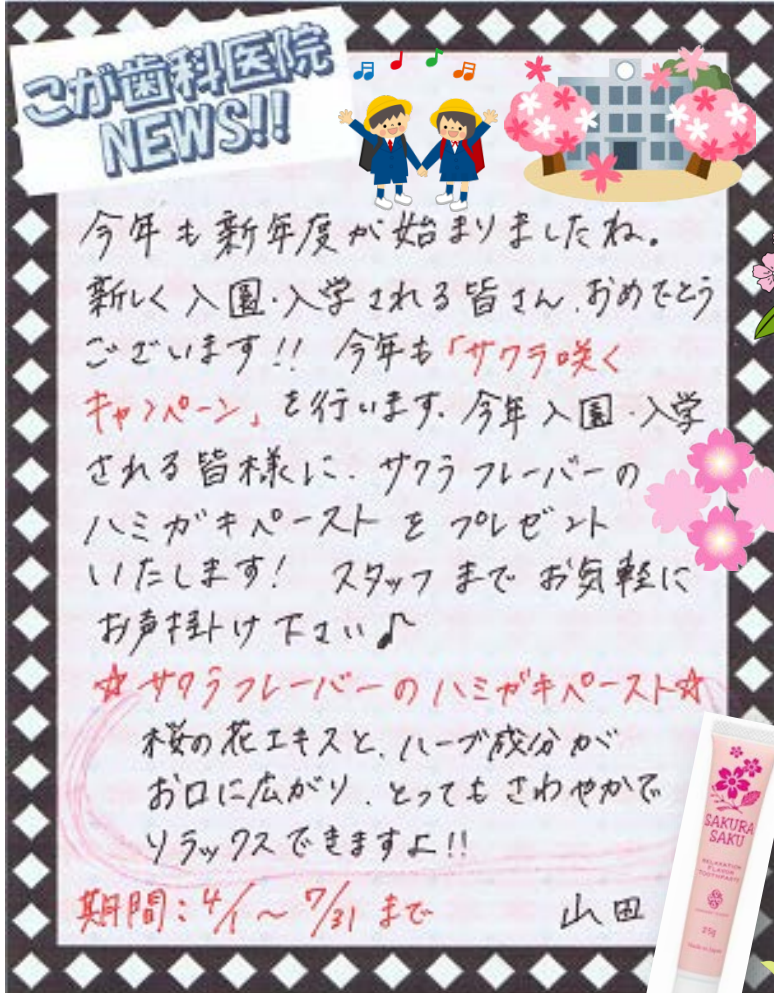 こが歯科医院
NEWS!!
今年も新年度が始まりましたね。
新しく入園・入学される皆さん、おめでとう
ございます!! 今年も「サクラ咲く
キャンペーン」を行います。今年入園・入学
される皆様に、サクラフレーバーの
ハミガキペーストをプレゼント
いたします! スタッフまでお気軽に
お声掛け下さい♪
☆サクラフレーバーのハミガキペースト☆
桜の花エキスと、ハーブ成分が
お口に広がり、とってもさわやかで
リラックスできますよ!!
期間:4/1~7/31まで 山田
SAKURA
SAKU
RELAXATION
FLAVOR
TOOTHPASTE
25g
Made in Japan